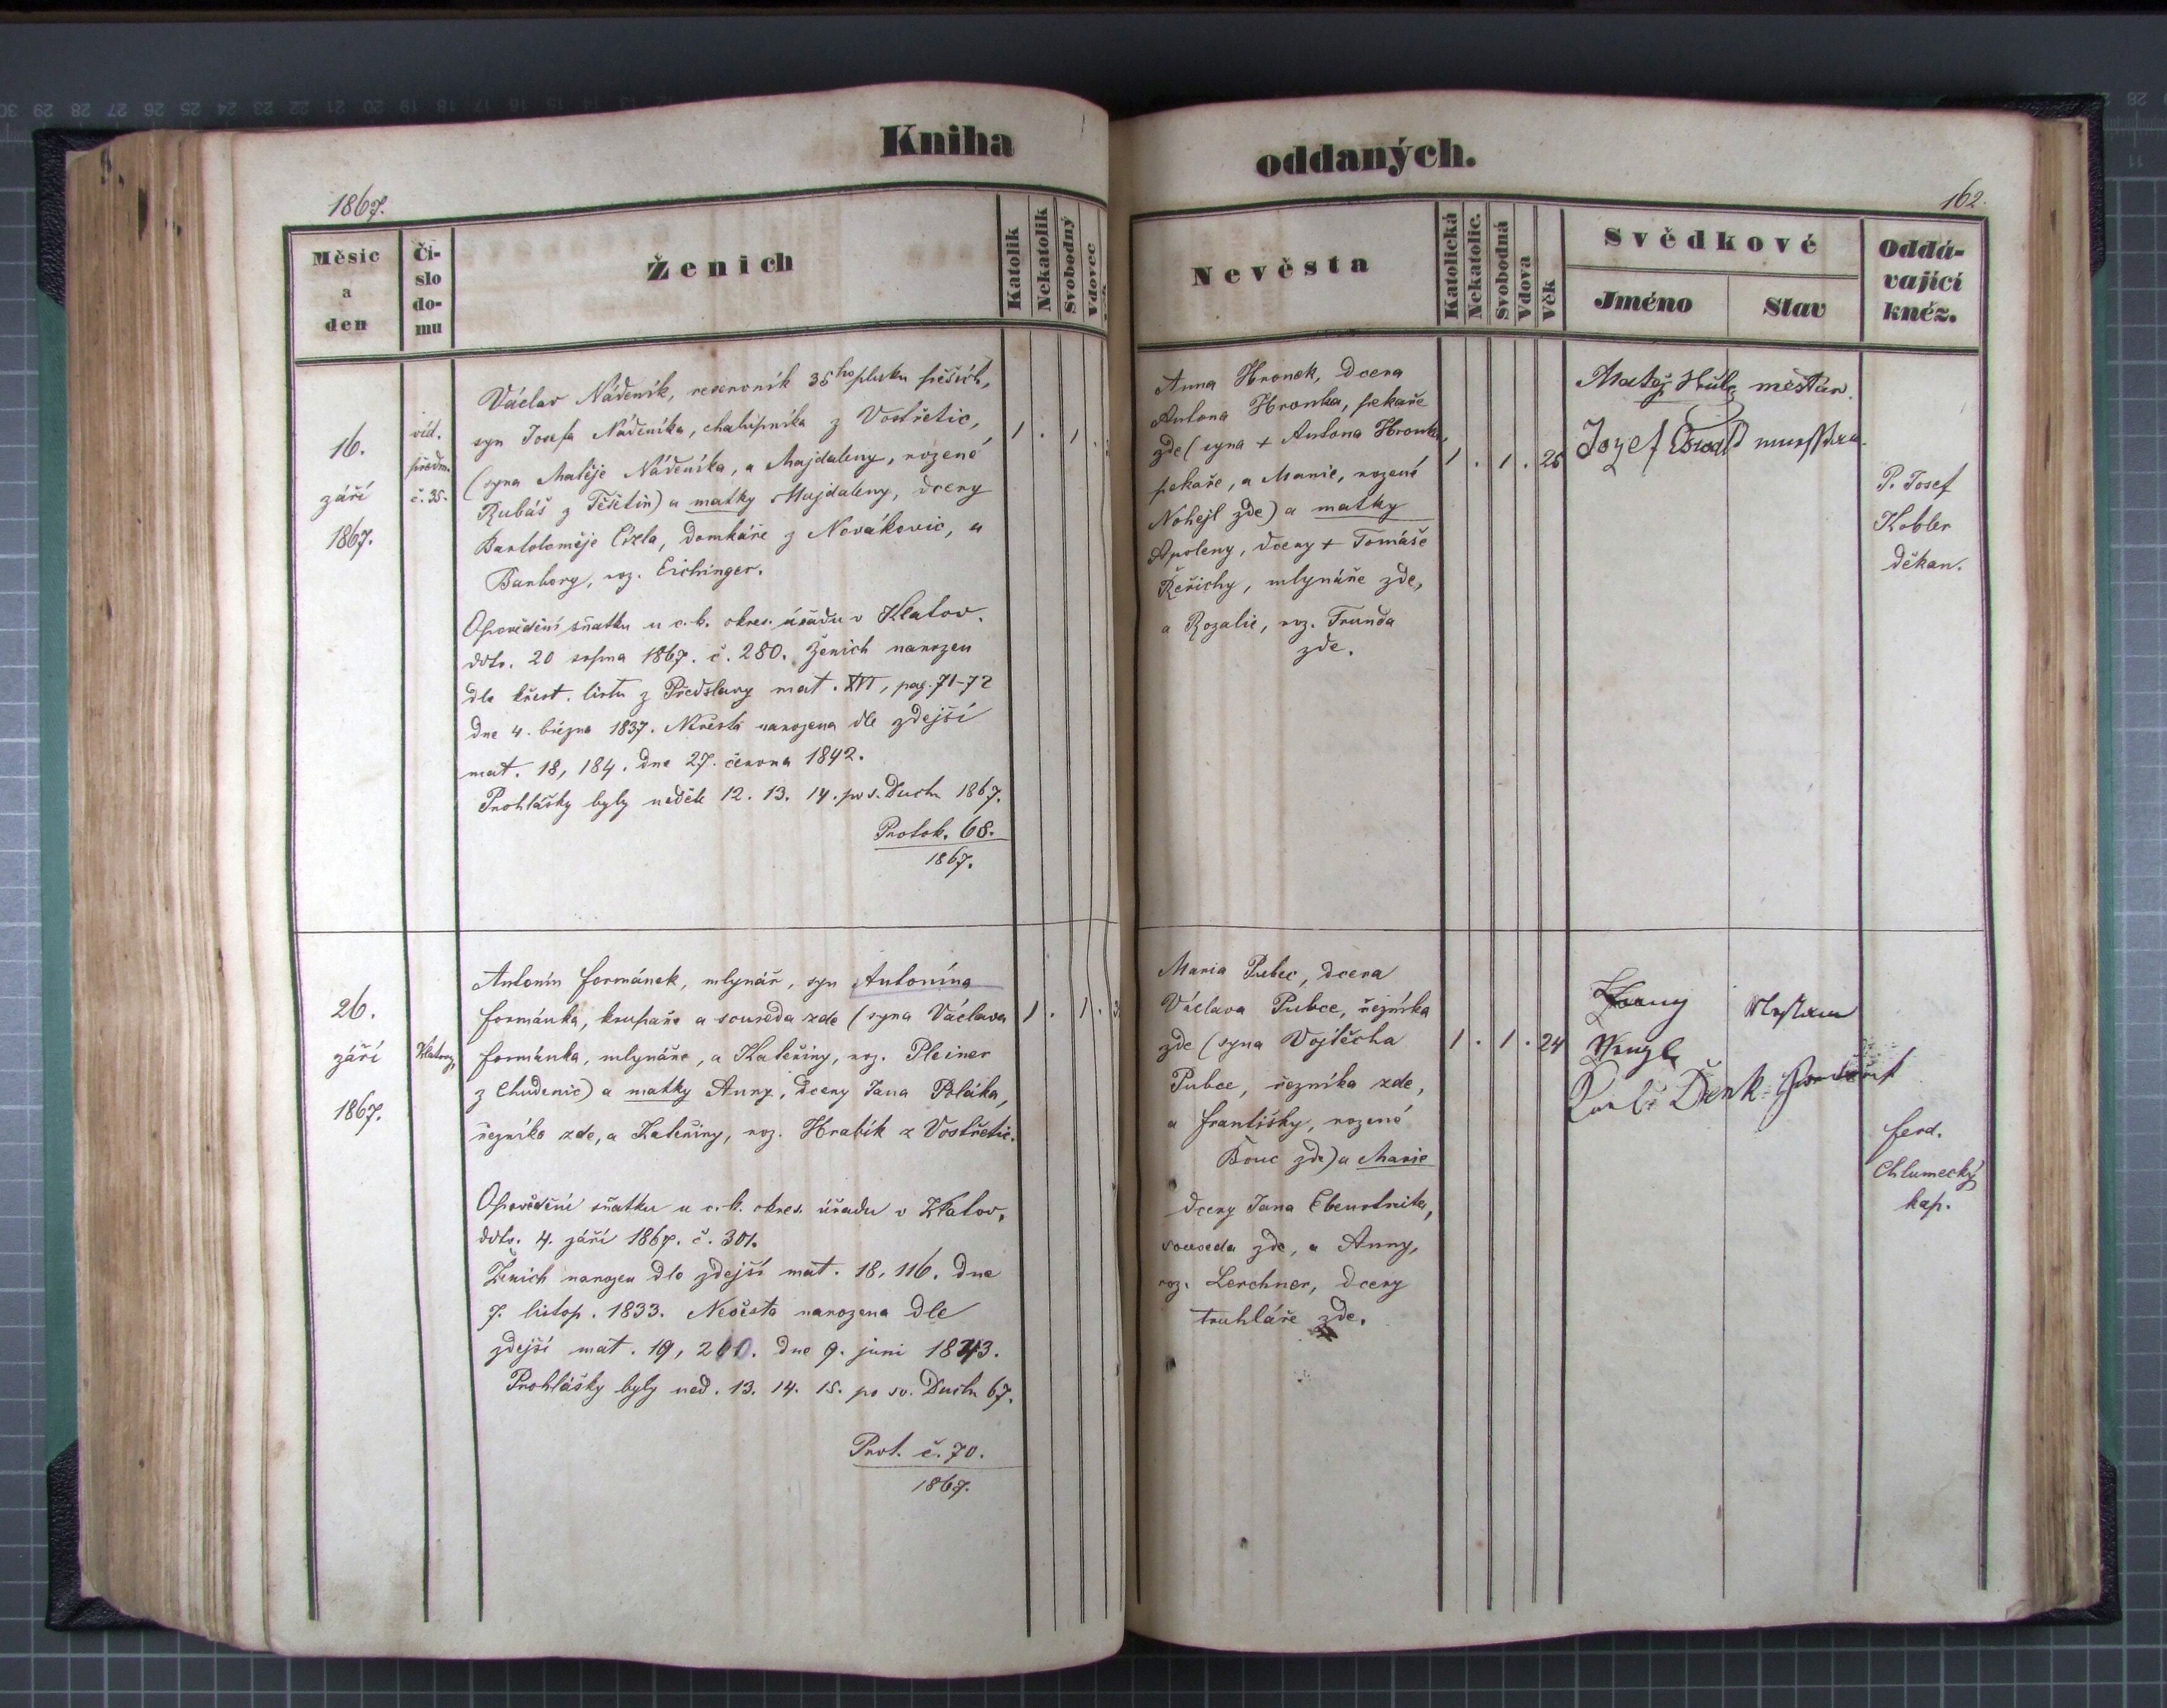 Kniha
oddaných.
1867.
162
Měsíc
a
den
Čí-
slo
do-
mu
Ženich
Katolík
Nekatolík
Svobodný
Vdovec
Nevěsta
Katolická
Nekatolic.
Svobodná
Vdova
Věk
Svědkové
Jméno
Stav
Oddá-
vající
kněz.
16.
září
1867.
víd.
předm.
č. 35.
Václav Nádeník, reservník 35ho pluku pěších,
syn Josefa Nádeníka, chalupníka z Vostřetic,
(syna Matěje Nádeníka, a Majdaleny, rozené
Rubáš z Těšetin) a matky Majdaleny, dcery
Bartoloměje Cízla, domkáře z Novákovic, a
Barbory, roz. Eichinger.
Opovědění sňatku u c. k. okres. úřadu v Klatov.
ddto. 20 srpna 1867. č. 280. Ženich narozen
dle křest. listu z Předslavy mat. XVI, pag. 71-72
dne 4. března 1837. Nevěsta narozena dle zdejší
mat. 18, 184. dne 27. června 1842.
Prohlášky byly neděle 12. 13. 14. po s. Duchu 1867.
Protok. 68.
1867.
1 . 1 .
Anna Hronek, dcera
Antona Hronka, pekaře
zde (syna + Antona Hronka,
pekaře, a Marie, rozené
Nohejl zde) a matky
Apoleny, dcery + Tomáše
Řeřichy, mlynáře zde,
a Rozalie, roz. Trunda
zde.
1 . 1 . 25
Matěj měšťan.
Jozef Eswald
P. Josef
Kobler
děkan.
26.
září
1867.
Klatovy
Antonín Formánek, mlynář, syn Antonína
Formánka, krupaře a souseda zde (syna Václava
Formánka, mlynáře, a Kateřiny, roz. Pleiner
z Chudenic) a matky Anny, dcery Jana Poláka,
řezníka zde, a Kateřiny, roz. Hrabík z Vostřetic.
Opovědění sňatku u c. k. okres. úřadu v Klatov.
ddto. 4. září 1867. č. 301.
Ženich narozen dle zdejší mat. 18, 116. dne
7. listop. 1833. Nevěsta narozena dle
zdejší mat. 19, 200. dne 9. juni 1843.
Prohlášky byly ned. 13. 14. 15. po sv. Duchu 67.
Prot. č. 70.
1867.
1 . 1 . 3
Maria Pubec, dcera
Václava Pubce, řezníka
zde (syna Vojtěcha
Pubce, řezníka zde,
a Františky, rozené
Bouc zde) a Marie
dcery Jana Ebenstreita,
souseda zde, a Anny,
roz. Lerchner, dcery
truhláře zde.
1 . 1 . 24
Ferd.
Chlumecký
kap.